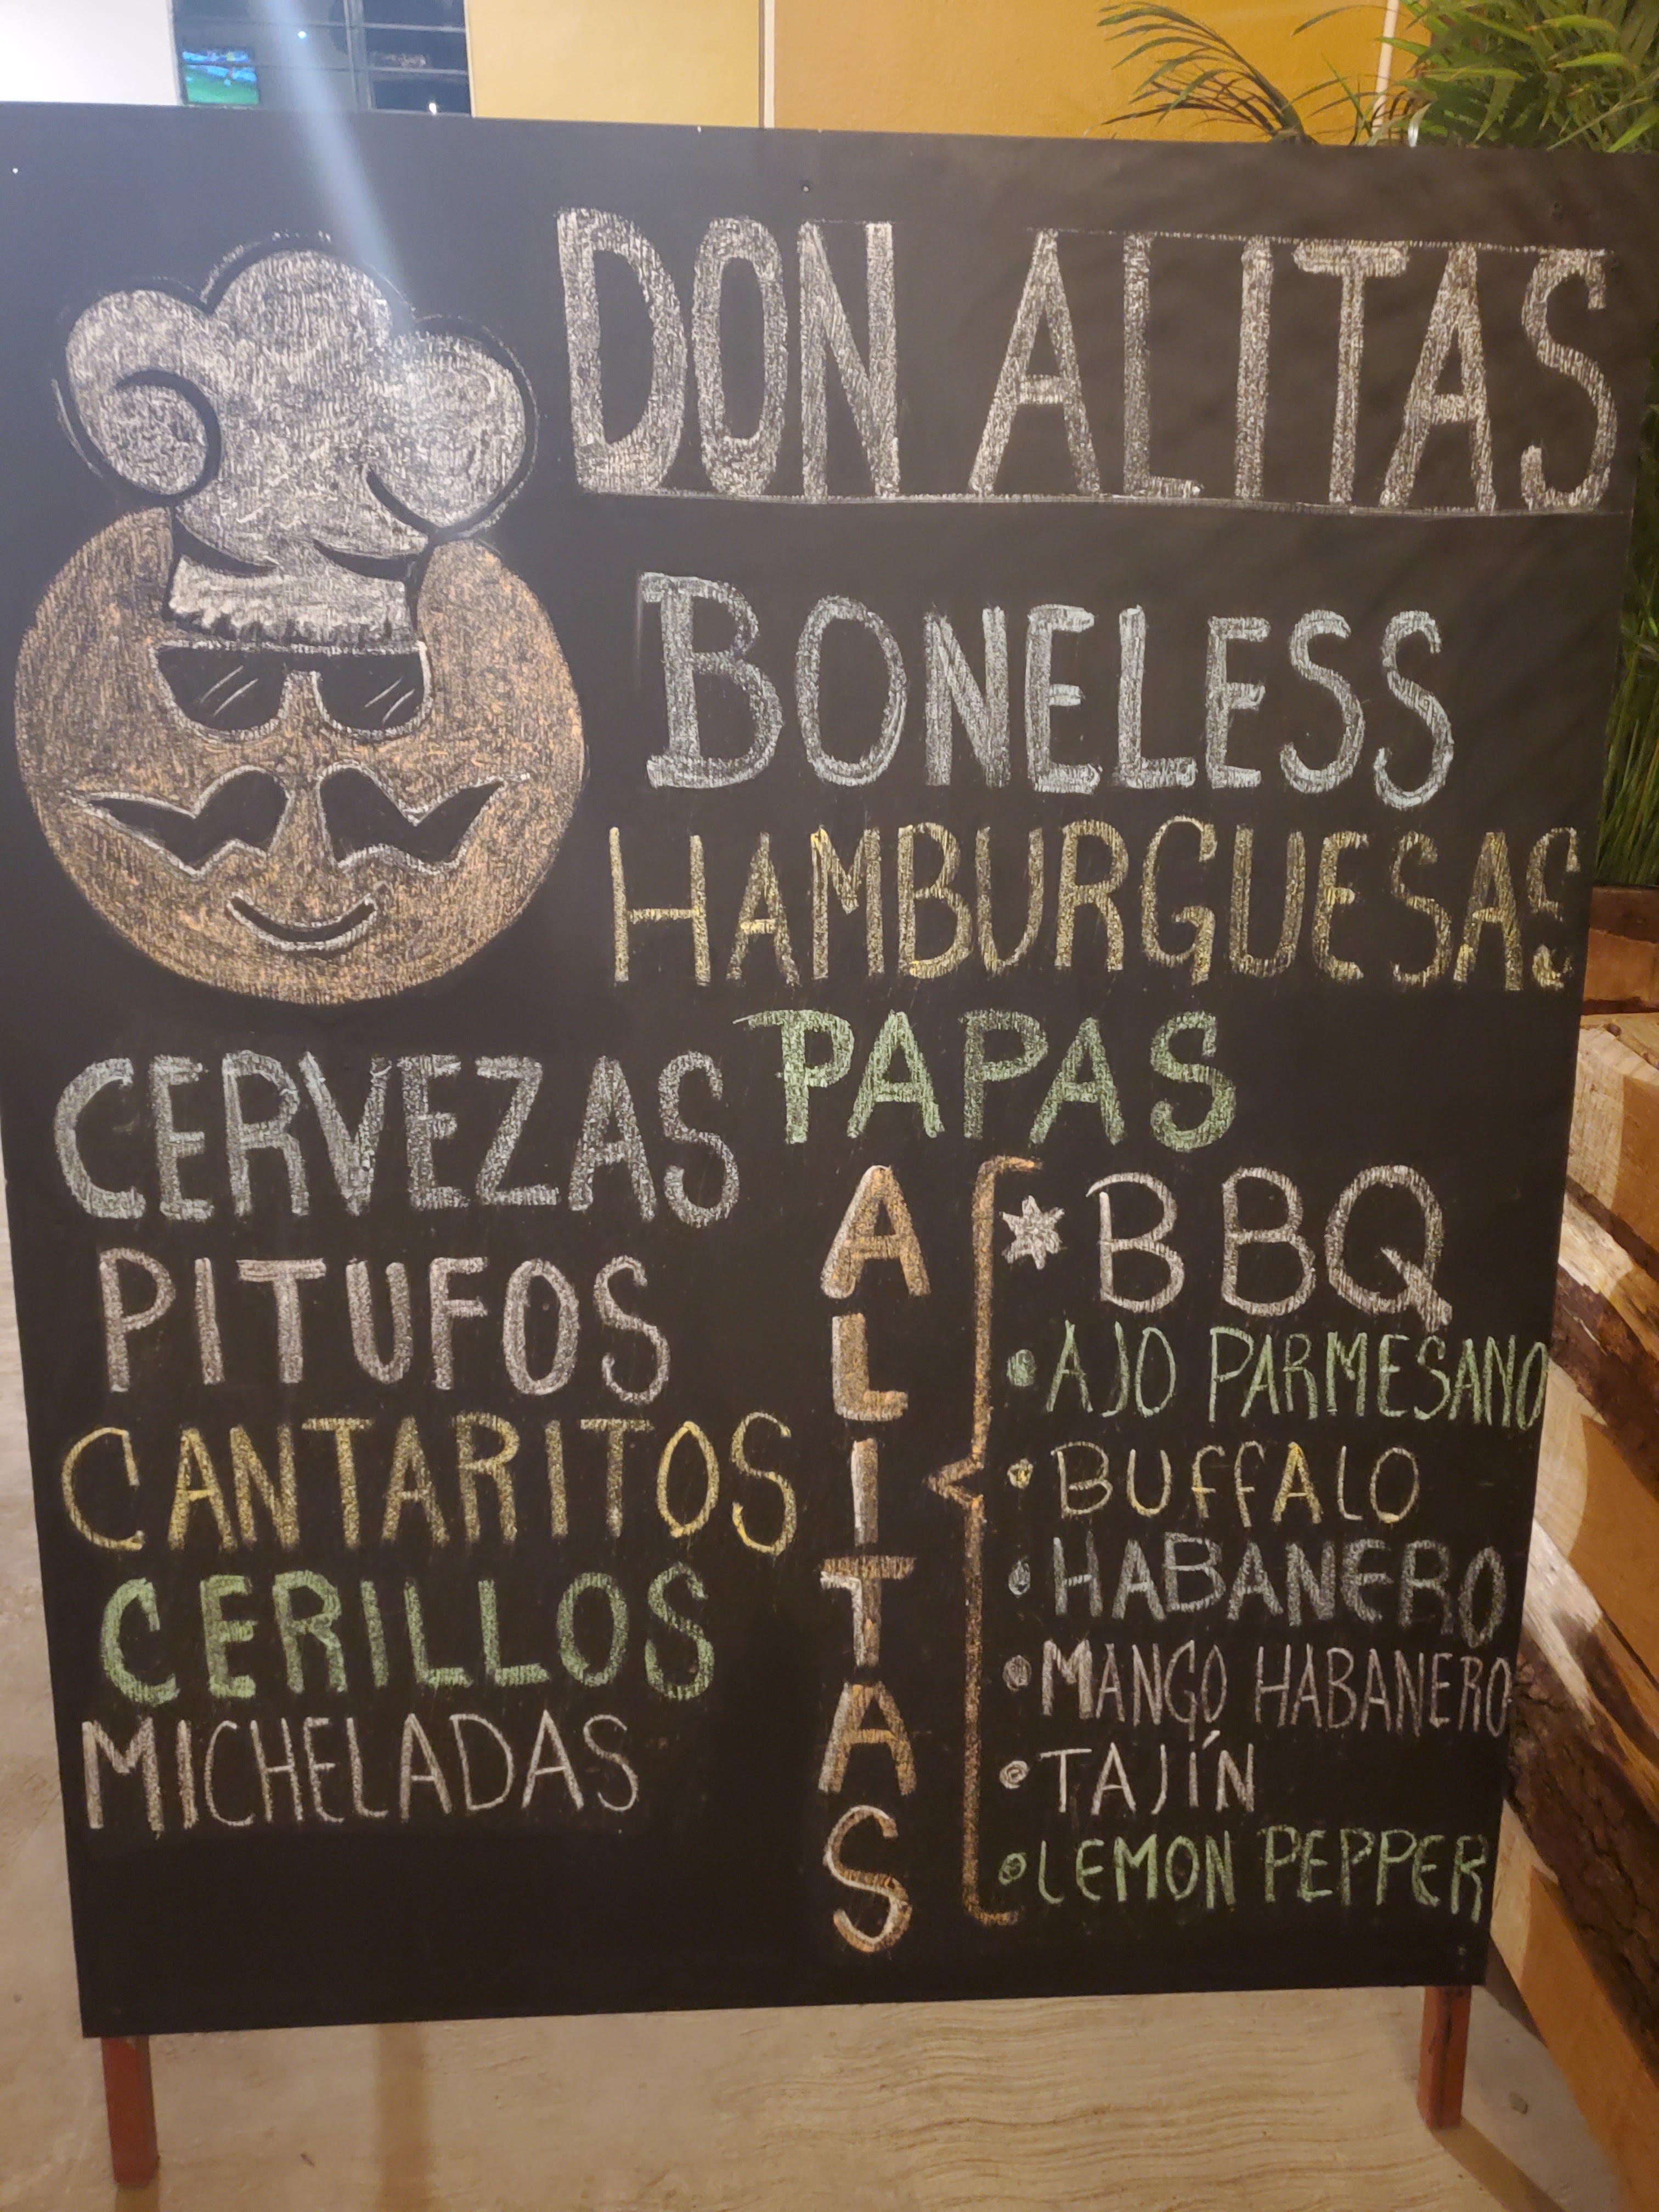 DON ALITAS
BONELESS
HAMBURGUESAS
PAPAS
CERVEZAS
PITUFOS
CANTARITOS
CERILLOS
MICHELADAS
ALITAS
* BBQ
• AJO PARMESANO
• BUFFALO
• HABANERO
• MANGO HABANERO
• TAJÍN
• LEMON PEPPER